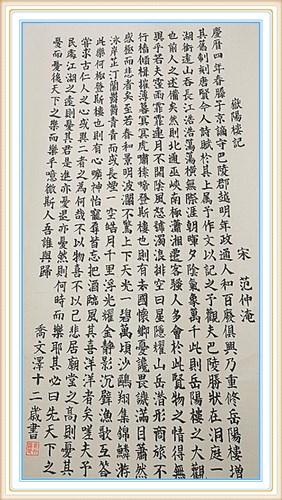 嶽陽樓記
宋 范仲淹
慶曆四年春滕子京謫守巴陵郡越明年政通人和百廢俱興乃重修岳陽樓增
其舊制刻唐賢今人詩賦於其上屬予作文以記之予觀夫巴陵勝狀在洞庭一
湖銜遠山吞長江浩浩蕩蕩橫無際涯朝暉夕陰氣象萬千此則岳陽樓之大觀
也前人之述備矣然則北通巫峽南極瀟湘遷客騷人多會於此覽物之情得無
異乎若夫霪雨霏霏連月不開陰風怒號濁浪排空日星隱耀山岳潛形商旅不
行檣傾楫摧薄暮冥冥虎嘯猿啼登斯樓也則有去國懷鄉憂讒畏譏滿目蕭然
感極而悲者矣至若春和景明波瀾不驚上下天光一碧萬頃沙鷗翔集錦鱗游
泳岸芷汀蘭鬱鬱青青而或長煙一空皓月千里浮光耀金靜影沉璧漁歌互答
此樂何極登斯樓也則有心曠神怡寵辱皆忘把酒臨風其喜洋洋者矣嗟夫予
嘗求古仁人之心或異二者之為何哉不以物喜不以己悲居廟堂之高則憂其
民處江湖之遠則憂其君是進亦憂退亦憂然則何時而樂耶其必曰先天下之
憂而憂後天下之樂而樂乎噫微斯人吾誰與歸
喬文澤十二歲書